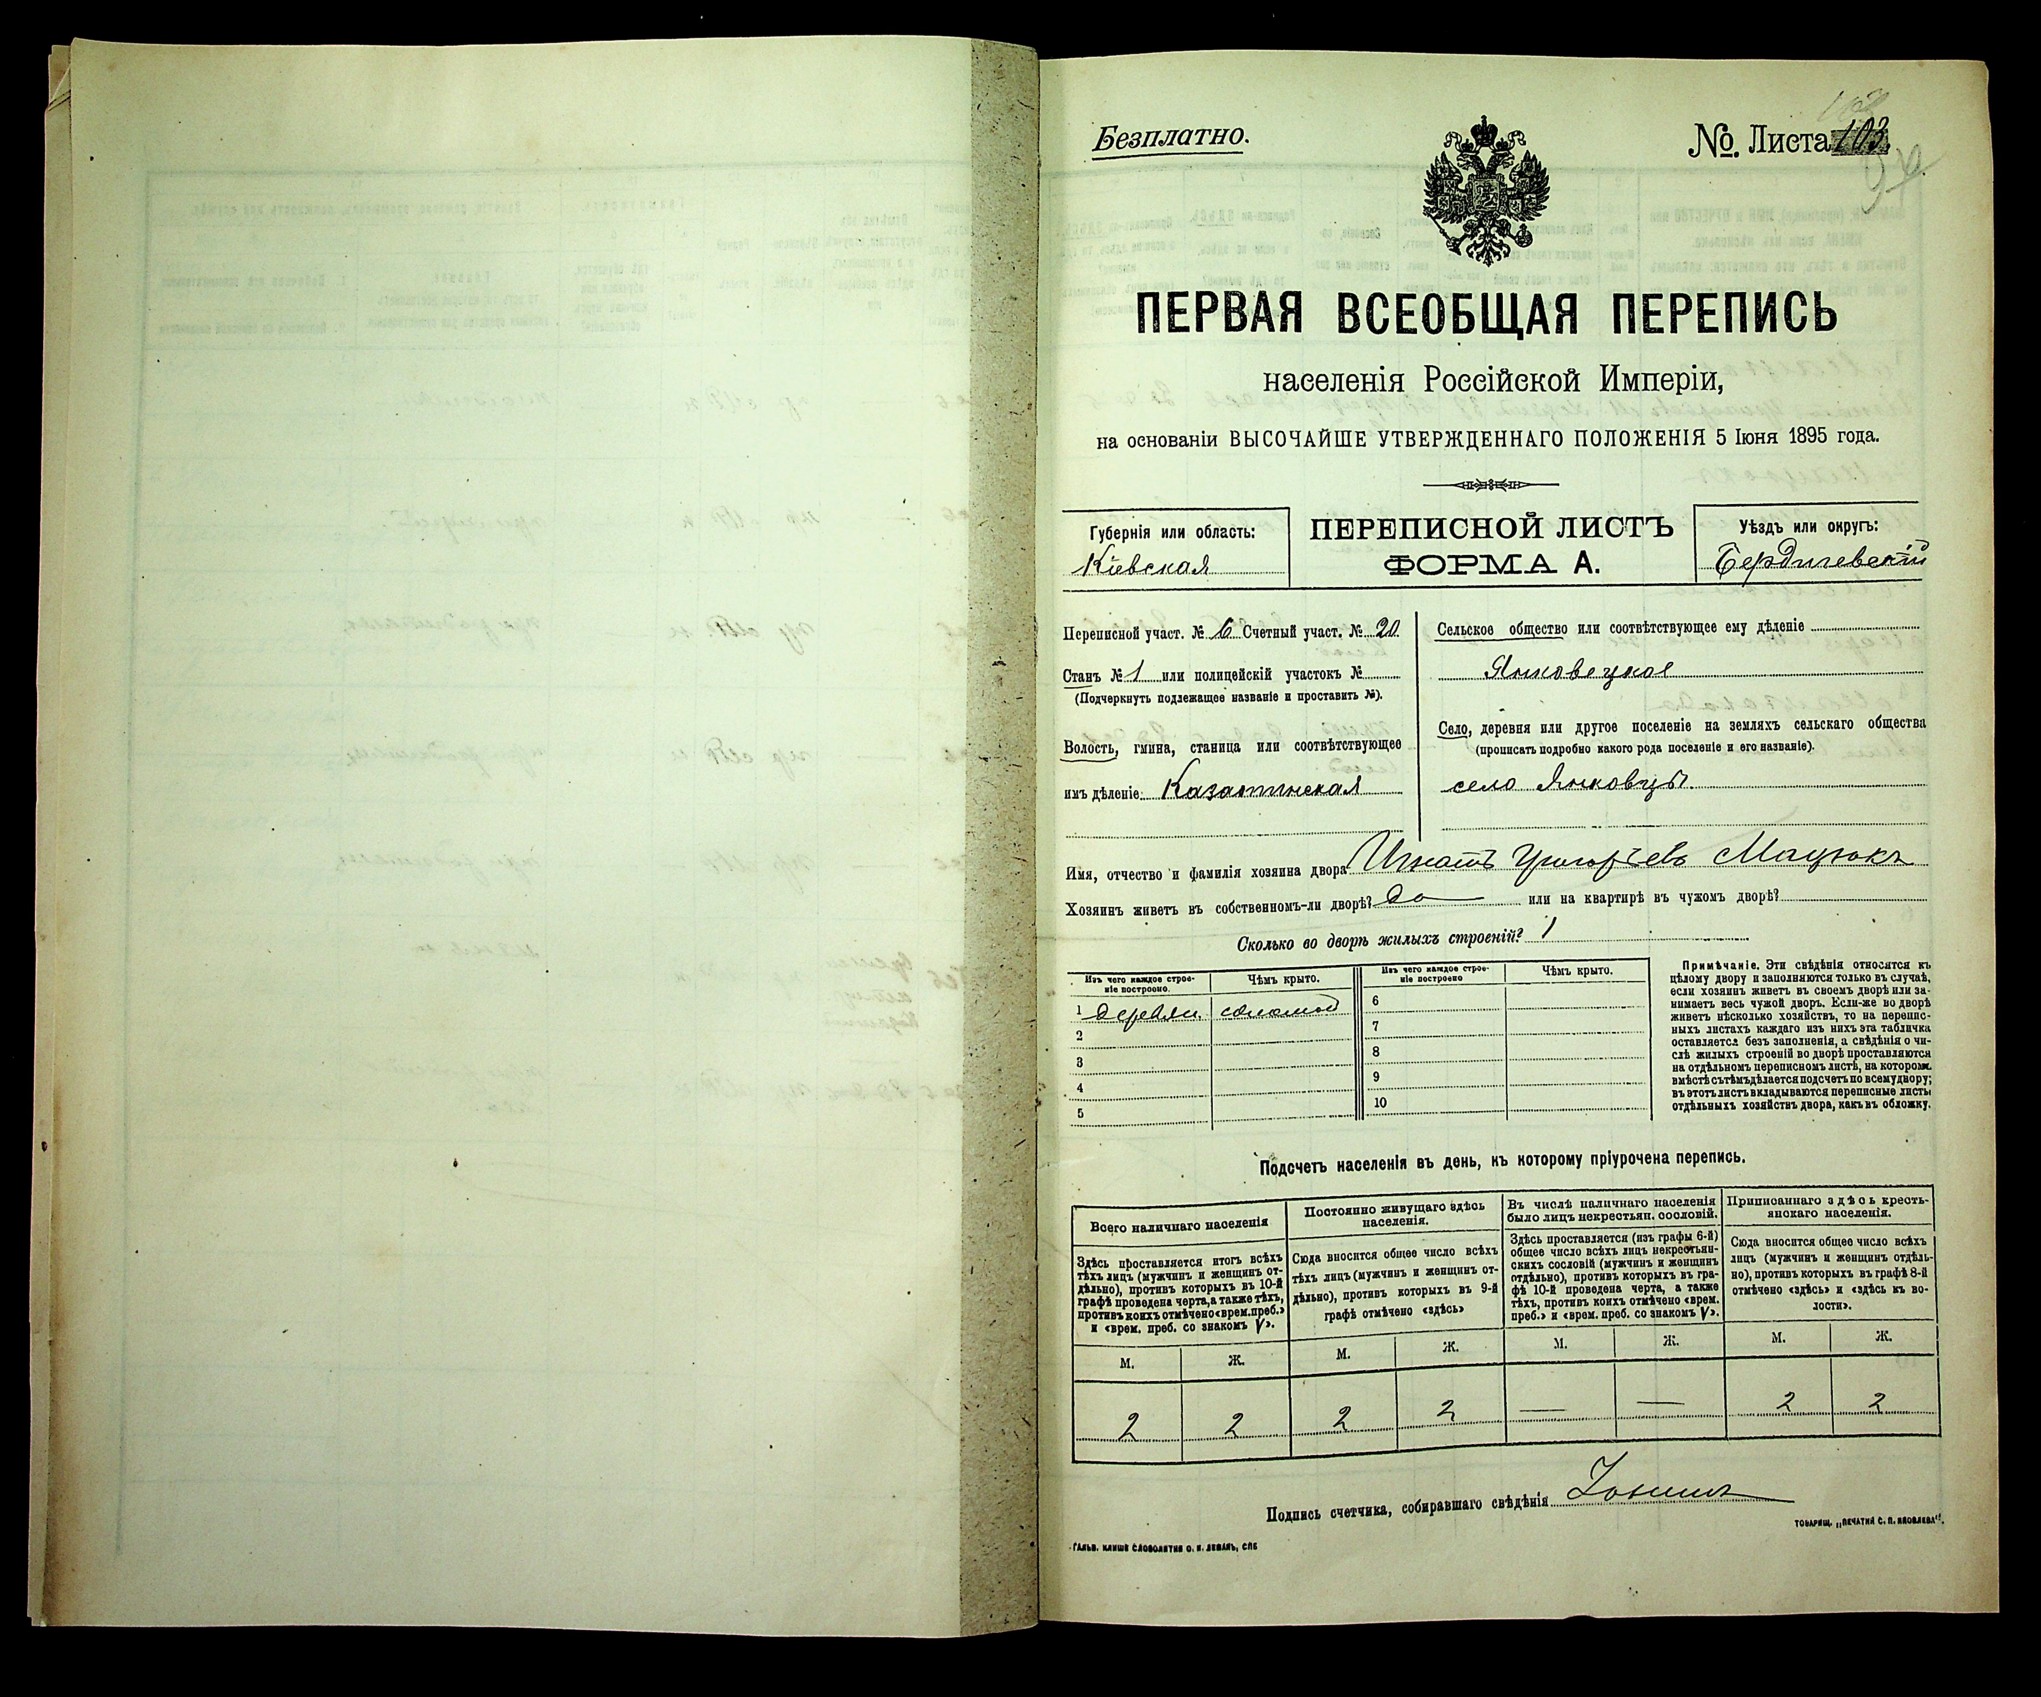 Безплатно.
№. Листа 103
ПЕРВАЯ ВСЕОБЩАЯ ПЕРЕПИСЬ
населенія Россійской Имперіи,
на основаніи ВЫСОЧАЙШЕ УТВЕРЖДЕННАГО ПОЛОЖЕНІЯ 5 Іюня 1895 года.
Губернія или область:
Кіевская
ПЕРЕПИСНОЙ ЛИСТЪ
ФОРМА А.
Уѣздъ или округъ:
Бердичевскій
Переписной участ. № 6 Счетный участ. № 20
Станъ № 1 или полицейскій участокъ №
(Подчеркнуть подлежащее названіе и проставить №).
Волость, гмина, станица или соотвѣтствующее
имъ дѣленіе Казатинская
Сельское общество или соотвѣтствующее ему дѣленіе
Янковецкое
Село, деревня или другое поселеніе на земляхъ сельскаго общества
(прописать подробно какого рода поселеніе и его названіе).
село Янковцы
Имя, отчество и фамилія хозяина двора Игнатъ Григорьевъ Мацюкъ
Хозяинъ живетъ въ собственномъ-ли дворѣ? да или на квартирѣ въ чужомъ дворѣ?
Сколько во дворѣ жилыхъ строеній? 1
Изъ чего каждое строе-
ніе построено.
Чѣмъ крыто.
Изъ чего каждое строе-
ніе построено
Чѣмъ крыто.
1 деревян. соломой
2
3
4
5
6
7
8
9
10
Примѣчаніе. Эти свѣдѣнія относятся къ
цѣлому двору и заполняются только въ случаѣ,
если хозяинъ живетъ въ своемъ дворѣ или за-
нимаетъ весь чужой дворъ. Если-же во дворѣ
живетъ нѣсколько хозяйствъ, то на перепис-
ныхъ листахъ каждаго изъ нихъ эта табличка
оставляется безъ заполненія, а свѣдѣнія о чи-
слѣ жилыхъ строеній во дворѣ проставляются
на отдѣльномъ переписномъ листѣ, на которомъ
вмѣстѣ съ тѣмъ дѣлается подсчетъ по всему двору;
въ этотъ листъ вкладываются переписные листы
отдѣльныхъ хозяйствъ двора, какъ въ обложку.
Подсчетъ населенія въ день, къ которому пріурочена перепись.
Всего наличнаго населенія
Здѣсь проставляется итогъ всѣхъ
тѣхъ лицъ (мужчинъ и женщинъ от-
дѣльно), противъ которыхъ въ 10-й
графѣ проведена черта, а также тѣхъ,
противъ коихъ отмѣчено «врем. преб.»
и «врем. преб. со знакомъ V».
Постоянно живущаго здѣсь
населенія.
Сюда вносится общее число всѣхъ
тѣхъ лицъ (мужчинъ и женщинъ от-
дѣльно), противъ которыхъ въ 9-й
графѣ отмѣчено «здѣсь»
Въ числѣ наличнаго населенія
было лицъ некрестьян. сословій.
Здѣсь проставляется (изъ графы 6-й)
общее число всѣхъ лицъ некрестьян-
скихъ сословій (мужчинъ и женщинъ
отдѣльно), противъ которыхъ въ гра-
фѣ 10-й проведена черта, а также
тѣхъ, противъ коихъ отмѣчено «врем.
преб.» и «врем. преб. со знакомъ V».
Приписаннаго здѣсь кресть-
янскаго населенія.
Сюда вносится общее число всѣхъ
лицъ (мужчинъ и женщинъ отдѣль-
но), противъ которыхъ въ графѣ 8-й
отмѣчено «здѣсь» и «здѣсь къ во-
лости».
М. Ж. М. Ж. М. Ж. М. Ж.
2 2 2 2 — — 2 2
Подпись счетчика, собиравшаго свѣдѣнія
ТОВАРИЩ. „ПЕЧАТНЯ С. П. ЯКОВЛЕВА“.
ГАЛЬВ. КЛИШЕ СЛОВОЛИТНИ О. И. ЛЕМАНЪ, СПБ